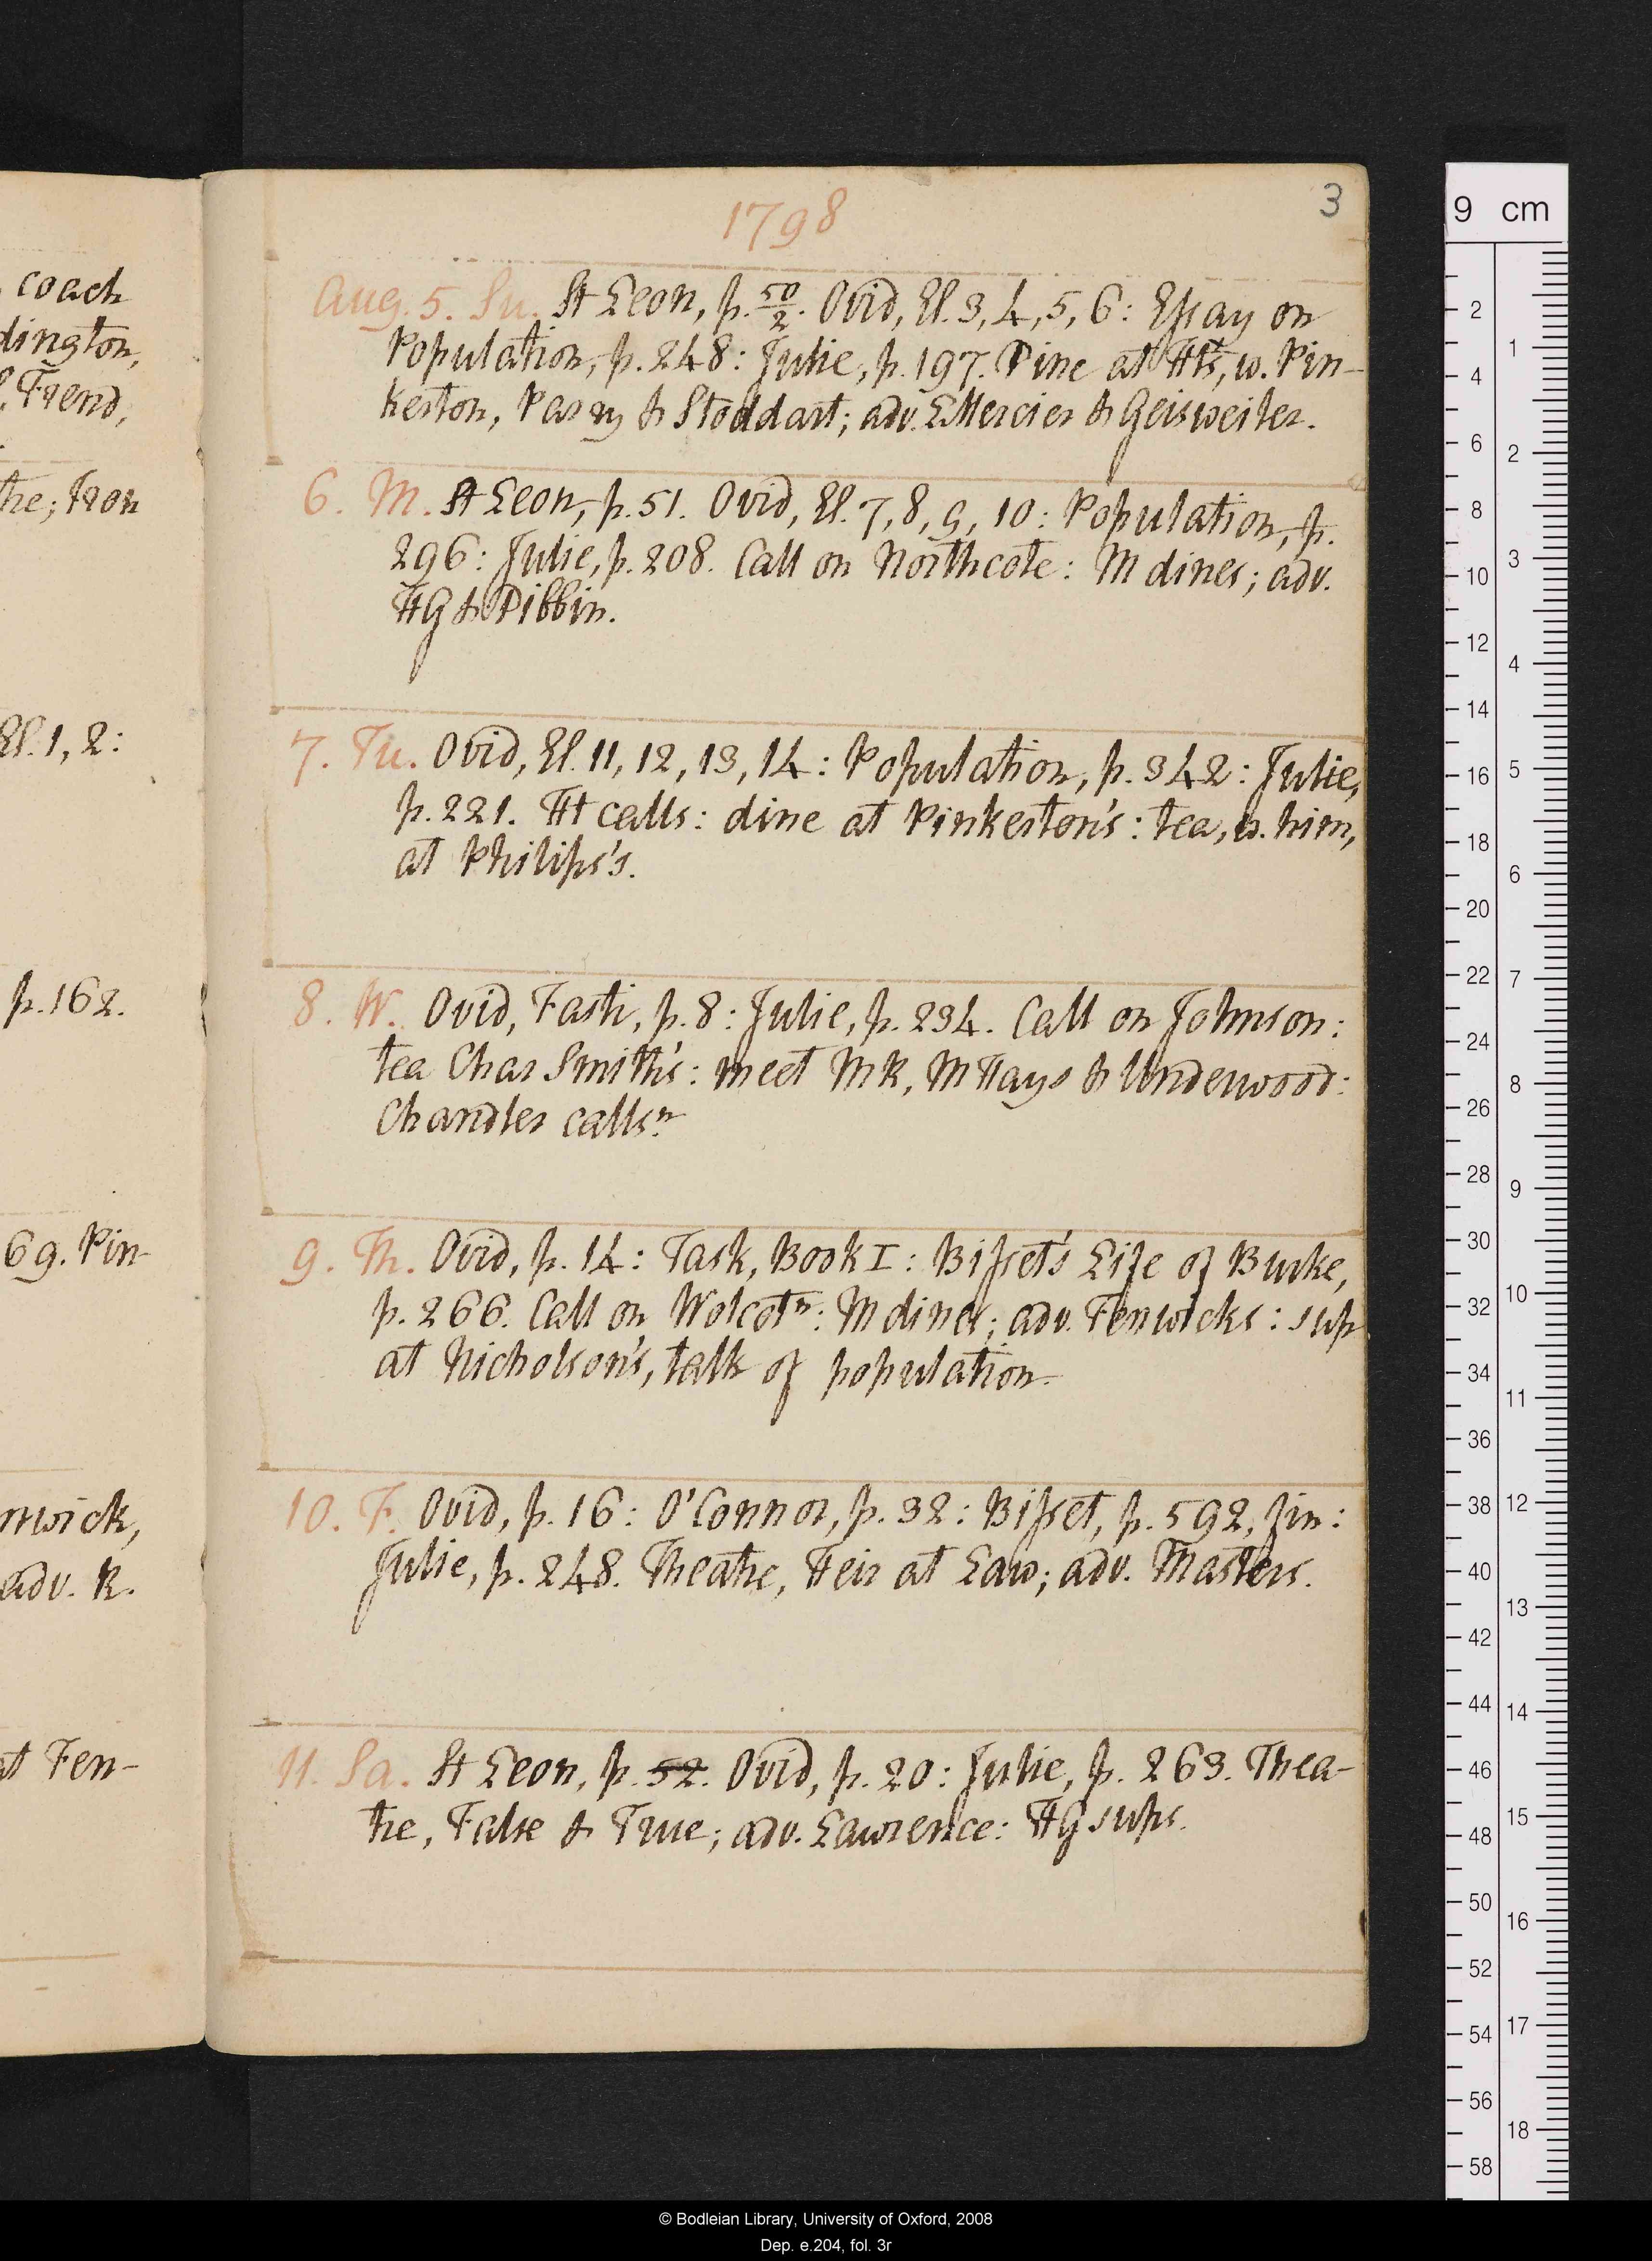 coach
dington,
Frend,
the; Iron
El. 1, 2:
p. 162.
69. Pin-
nwick,
adv. R.
at Fen-
3
1798
Aug. 5. Su. St Leon, p. 50/2. Ovid, El. 3, 4, 5, 6: Essay on
Population, p. 248: Julie, p. 197. Dine at Ht's, w. Pin-
kerton, Parry & Stoddart; adv. L Mercier & Geisweiler.
6. M. St Leon, p. 51. Ovid, El. 7, 8, 9, 10: Population, p.
296: Julie, p. 208. Call on Northcote: M dines; adv.
HG & Dibbin.
7. Tu. Ovid, El. 11, 12, 13, 14: Population, p. 342: Julie,
p. 221. Ht calls: dine at Pinkerton's: tea, w. him,
at Philips's.
8. W. Ovid, Fasti, p. 8: Julie, p. 234. Call on Johnson:
tea Char Smith's: meet MR, M Hays & Underwood:
Chandler calls n.
9. Th. Ovid, p. 14: Task, Book I: Bisset's Life of Burke,
p. 266. Call on Wolcot n: M dines; adv. Fenwicks: sup
at Nicholson's, talk of population.
10. F. Ovid, p. 16: O'Connor, p. 32: Bisset, p. 592, fin:
Julie, p. 248. Theatre, Heir at Law; adv. Masters.
11. Sa. St Leon, p. 52. Ovid, p. 20: Julie, p. 263. Thea-
tre, False & True; adv. Lawrence: HG sups.
9 cm
2
4
6
8
10
12
14
16
18
20
22
24
26
28
30
32
34
36
38
40
42
44
46
48
50
52
54
56
58
1
2
3
4
5
6
7
8
9
10
11
12
13
14
15
16
17
18
© Bodleian Library, University of Oxford, 2008
Dep. e.204, fol. 3r